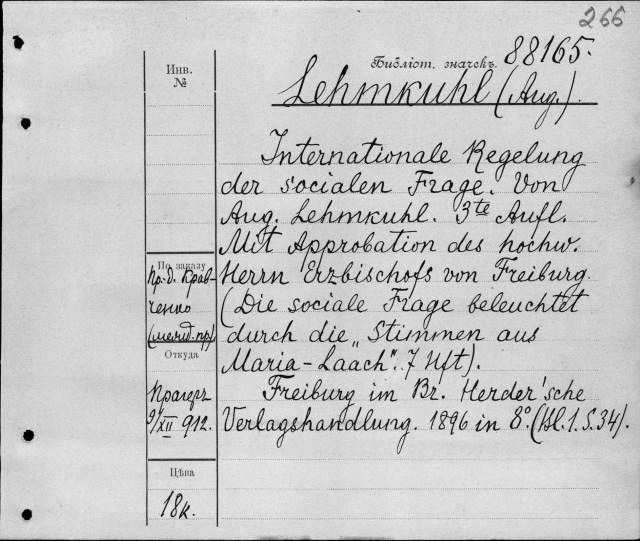 266
Библіот. значекъ. 88165.
Инв.
№
Lehmkuhl (Aug.).
Internationale Regelung
der socialen Frage. Von
Aug. Lehmkuhl. 3te Aufl.
Mit Approbation des hochw.
Herrn Erzbischofs von Freiburg.
(Die sociale Frage beleuchtet
durch die „Stimmen aus
Maria-Laach". 7 Hft).
Freiburg im Br. Herder'sche
Verlagshandlung. 1896 in 8°. (Bl. 1. S. 34).
По заказу
Пр.-д. Крав-
ченко
Откуда
Прагеръ
9/XII 912.
Цѣна
18к.